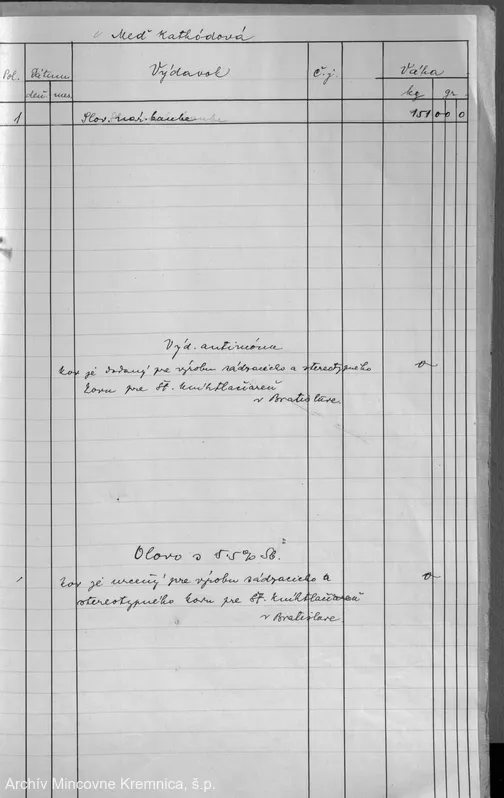 Meď Kathódová
Pol. Dátum Výdavok č.j. Váha
deň. mes. kg gr
1 Slov. banke 151 00 0
Výd. antimónu
kov je dodaný pre výrobu sádzacieho a stereotypného
kovu pre Št. kníhtlačiareň
v Bratislave.
Olovo s 5.5% Sb.
kov je určený pre výrobu sádzacieho a
stereotypného kovu pre Št. kníhtlačiareň
v Bratislave.
Archív Mincovne Kremnica, š.p.